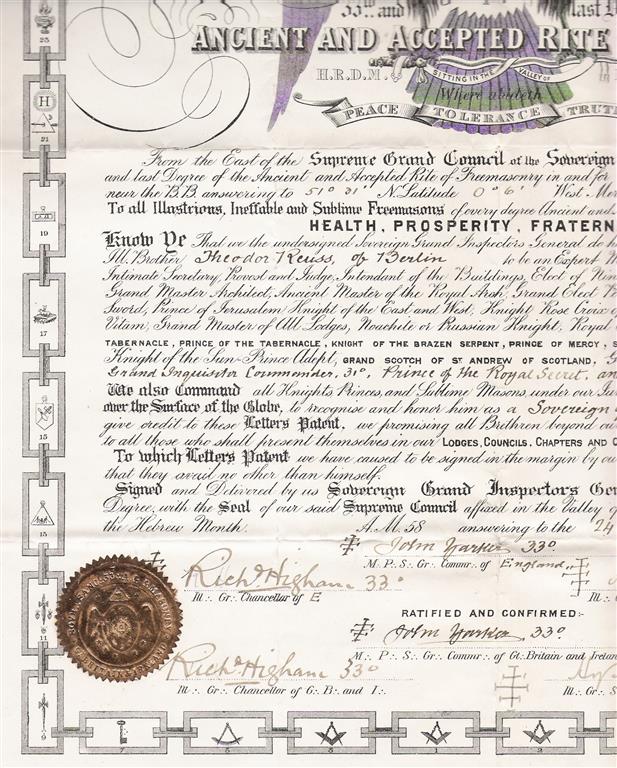 33rd and last
ANCIENT AND ACCEPTED RITE
H.R.D.M. SITTING IN THE VALLEY OF
Where abideth
PEACE TOLERANCE TRUTH
From the East of the Supreme Grand Council of the Sovereign
and last Degree of the Ancient and Accepted Rite of Freemasonry in and for
near the B.B. answering to 51° 31' N. Latitude 0° 6' West Mer
To all Illustrious, Ineffable and Sublime Freemasons of every degree Ancient and
HEALTH, PROSPERITY, FRATERN
Know Ye That we the undersigned Sovereign Grand Inspectors General do h
Ill. Brother Theodor Reuss, of Berlin to be an Expert
Intimate Secretary, Provost and Judge, Intendent of the Buildings, Elect of Nin
Grand Master Architect, Ancient Master of the Royal Arch, Grand Elect
Sword, Prince of Jerusalem Knight of the East and West, Knight Rose Croix
Vitam, Grand Master of all Lodges, Noachite or Russian Knight, Royal
TABERNACLE, PRINCE OF THE TABERNACLE, KNIGHT OF THE BRAZEN SERPENT, PRINCE OF MERCY, S
Knight of the Sun-Prince Adept, GRAND SCOTCH OF ST ANDREW OF SCOTLAND, G
Grand Inquisitor Commander, 31°, Prince of the Royal Secret, an
We also Command all Knights, Princes, and Sublime Masons, under our Jur
over the Surface of the Globe, to recognise and honor him as a Sovereign
give credit to these Letters Patent, we promising all Brethren beyond ou
to all those who shall present themselves in our LODGES, COUNCILS, CHAPTERS AND C
To which Letters Patent we have caused to be signed in the margin by ou
that they avail no other than himself.
Signed and Delivered by us Sovereign Grand Inspectors Gen
Degree, with the Seal of our said Supreme Council affixed in the Valley o
the Hebrew Month. A.M. 58 answering to the 24
John Yarker 33°
M.·. P.·. S.·. Gr.·. Commr.·. of England
Richd Higham 33°
Ill.·. Gr.·. Chancellor of E Ill.·. G
RATIFIED AND CONFIRMED:-
John Yarker 33°
M.·. P.·. S.·. Gr.·. Commr.·. of Gt. Britain and Irelan
Richd Higham 33°
Ill.·. Gr.·. Chancellor of G.·. B.·. and I.·. Ill.·. Gr.·. S
23
H
21
19
17
15
13
11
9
7
5
3
1
2
4